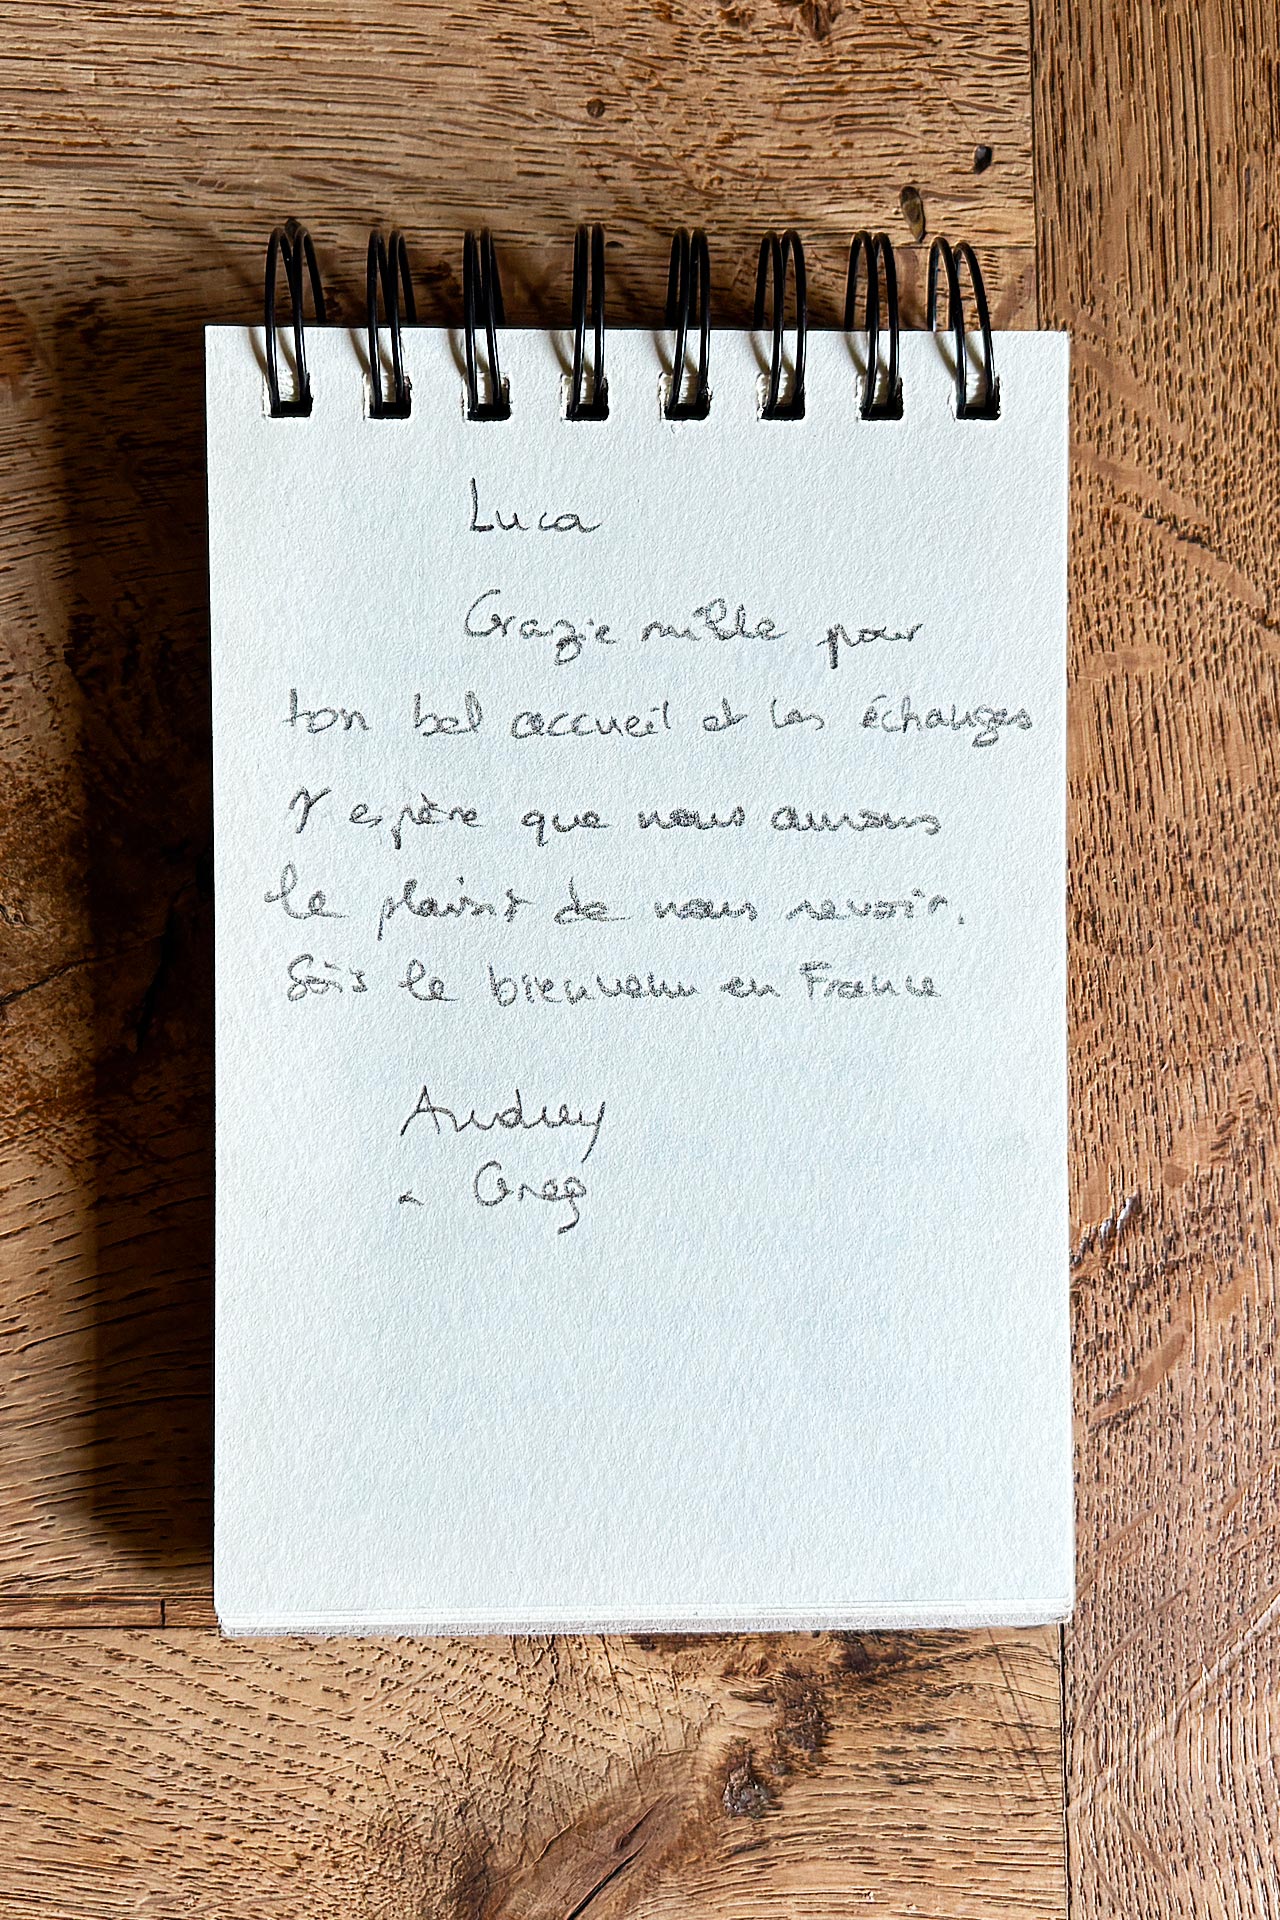 Luca
Grazie mille pour
ton bel accueil et les échanges
J'espère que nous aurons
le plaisir de nous revoir.
Sois le bienvenu en France
Audrey
& Greg